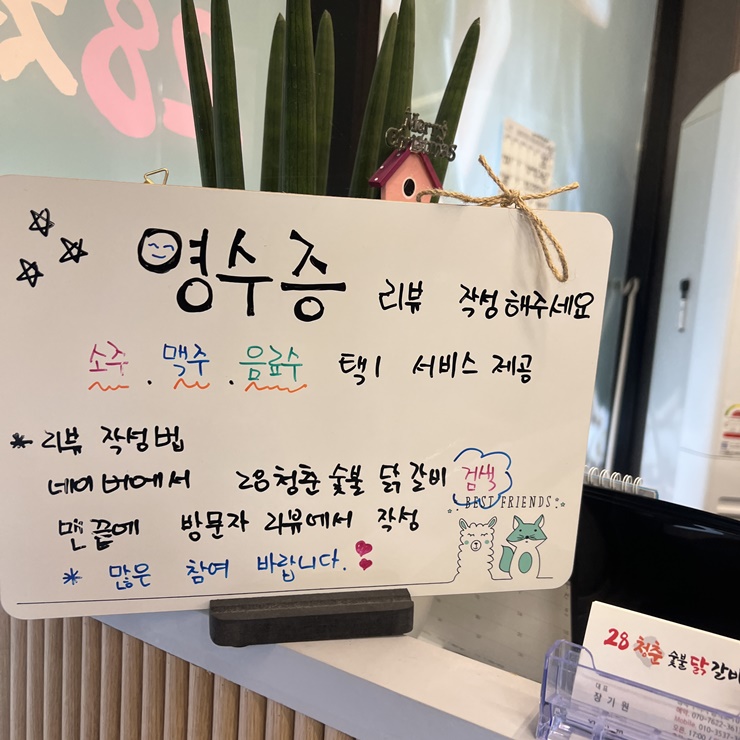 28
Merry
Christmas
영수증 리뷰 작성해주세요
소주 . 맥주 . 음료수 택1 서비스 제공
* 리뷰 작성법
네이버에서 28청춘 숯불 닭갈비 검색
맨끝에 방문자 리뷰에서 작성
* 많은 참여 바랍니다.
BEST FRIENDS
28 청춘 숯불 닭갈비
대표
장기원